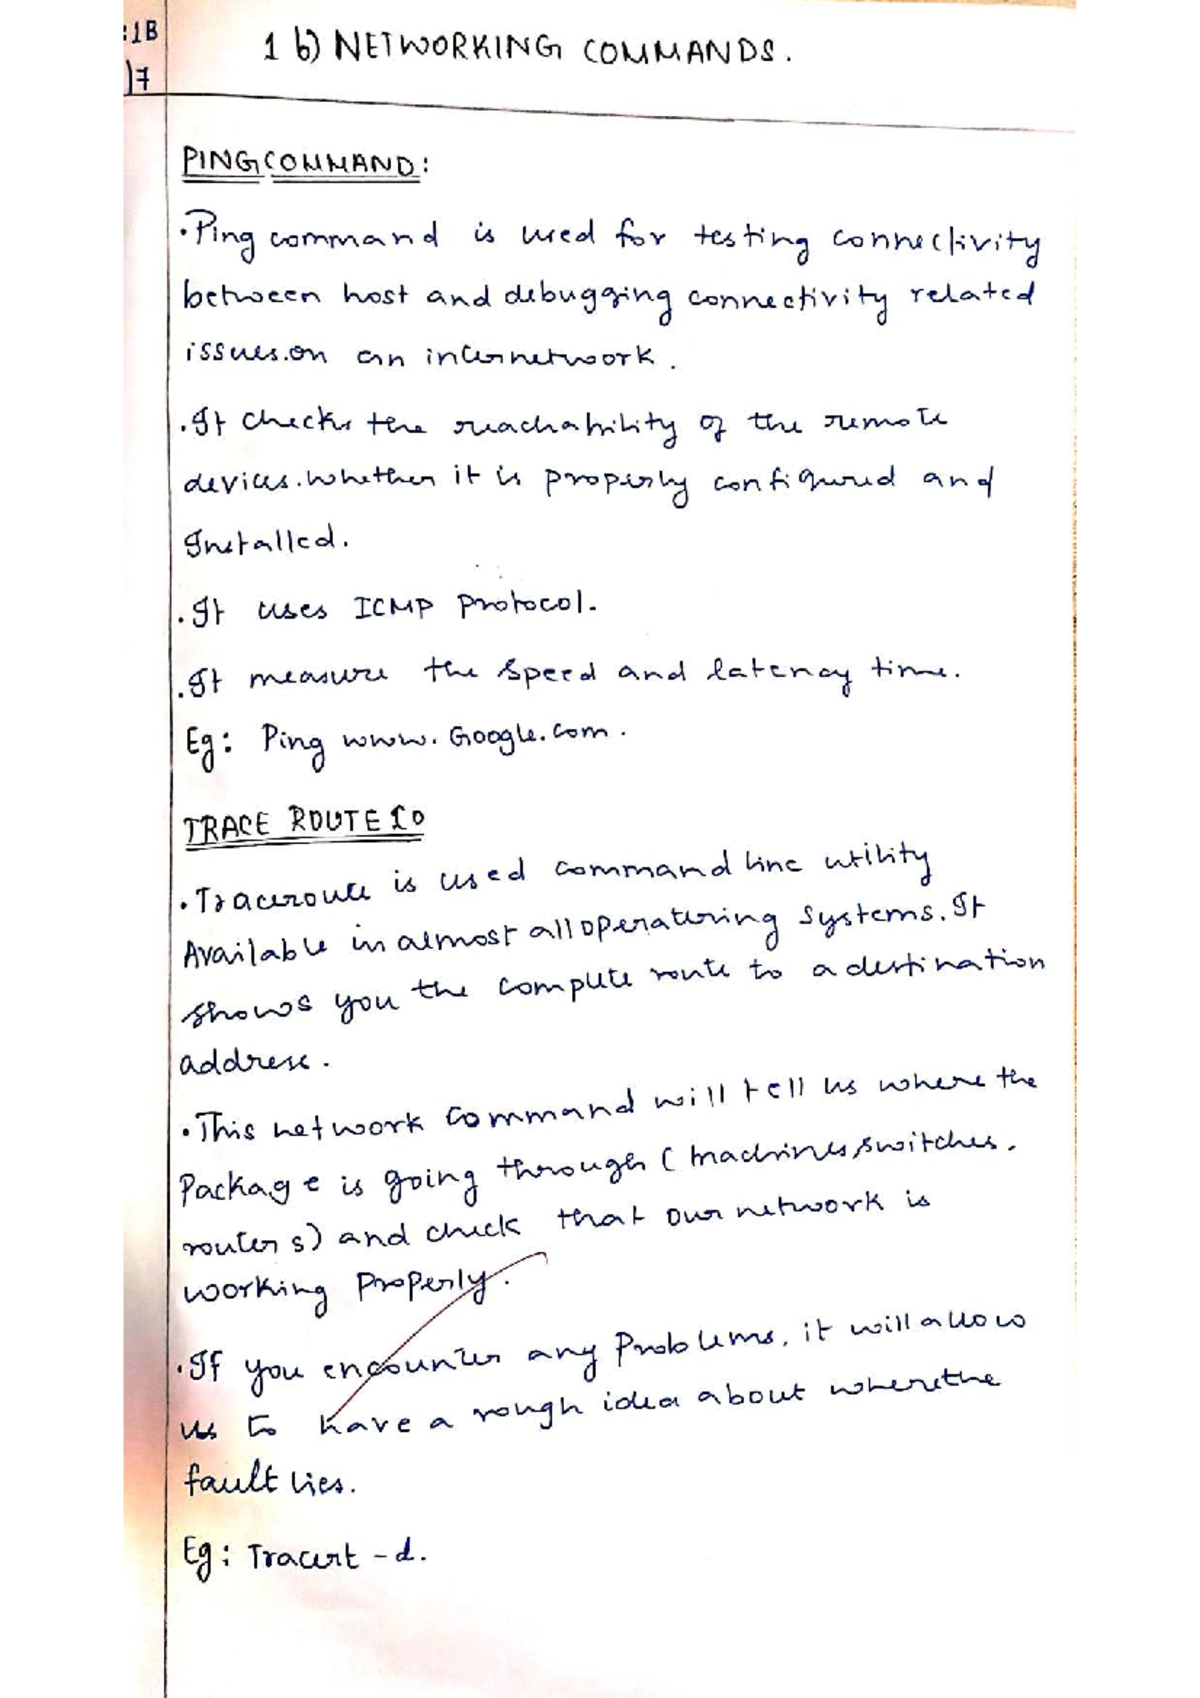 :1B
)7
1 b) NETWORKING COMMANDS.
PING COMMAND:
•Ping command is used for testing connectivity
between host and debugging connectivity related
issues.on an internetwork.
.It checks the reachability of the remote
devices.whether it is properly configured and
Installed.
.It uses ICMP protocol.
.It measure the speed and latency time.
Eg: Ping www.Google.com.
TRACE ROUTE
•Traceroute is used command line utility
Available in almost all operatering systems.It
shows you the compute route to a destination
address.
•This network command will tell us where the
Package is going through (machines,switches.
routers) and check that our network is
working Properly.
•If you encounter any Problems, it will allow
us to have a rough idea about where the
fault lies.
Eg: Tracert -d.